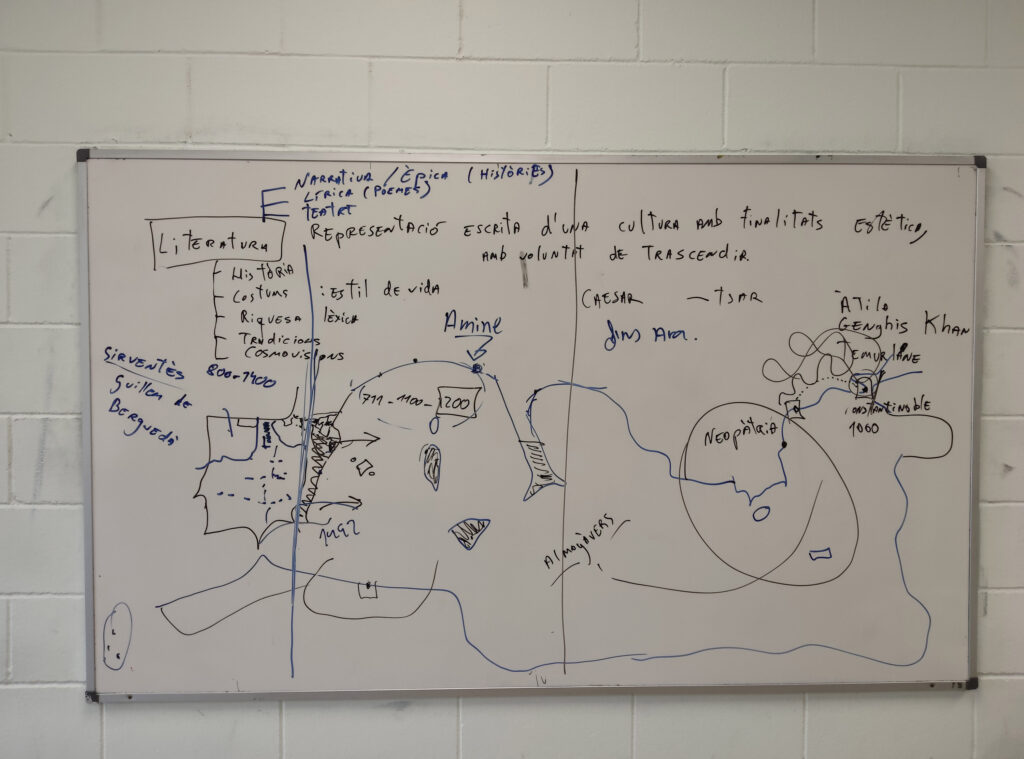 NARRATIVA / ÈPICA (HISTÒRIES)
LÍRICA (POEMES)
TEATRE
LITERATURA
REPRESENTACIÓ ESCRITA D'UNA CULTURA AMB FINALITATS ESTÈTICA,
AMB VOLUNTAT DE TRASCENDIR.
HISTÒRIA
COSTUMS : ESTIL DE VIDA
RIQUESA LÈXICA
TRADICIONS
COSMOVISIONS
CAESAR — TSAR
fins Ara.
ÀTILA
GENGHIS KHAN
TEMURLANE
CONSTANTINOBLE
1000
Amine
SIRVENTÈS
Guillem de
BERGUEDÀ
800-1400
(711-1100-1200
NEOPÀTRIA
ALMOGÀVERS
1492